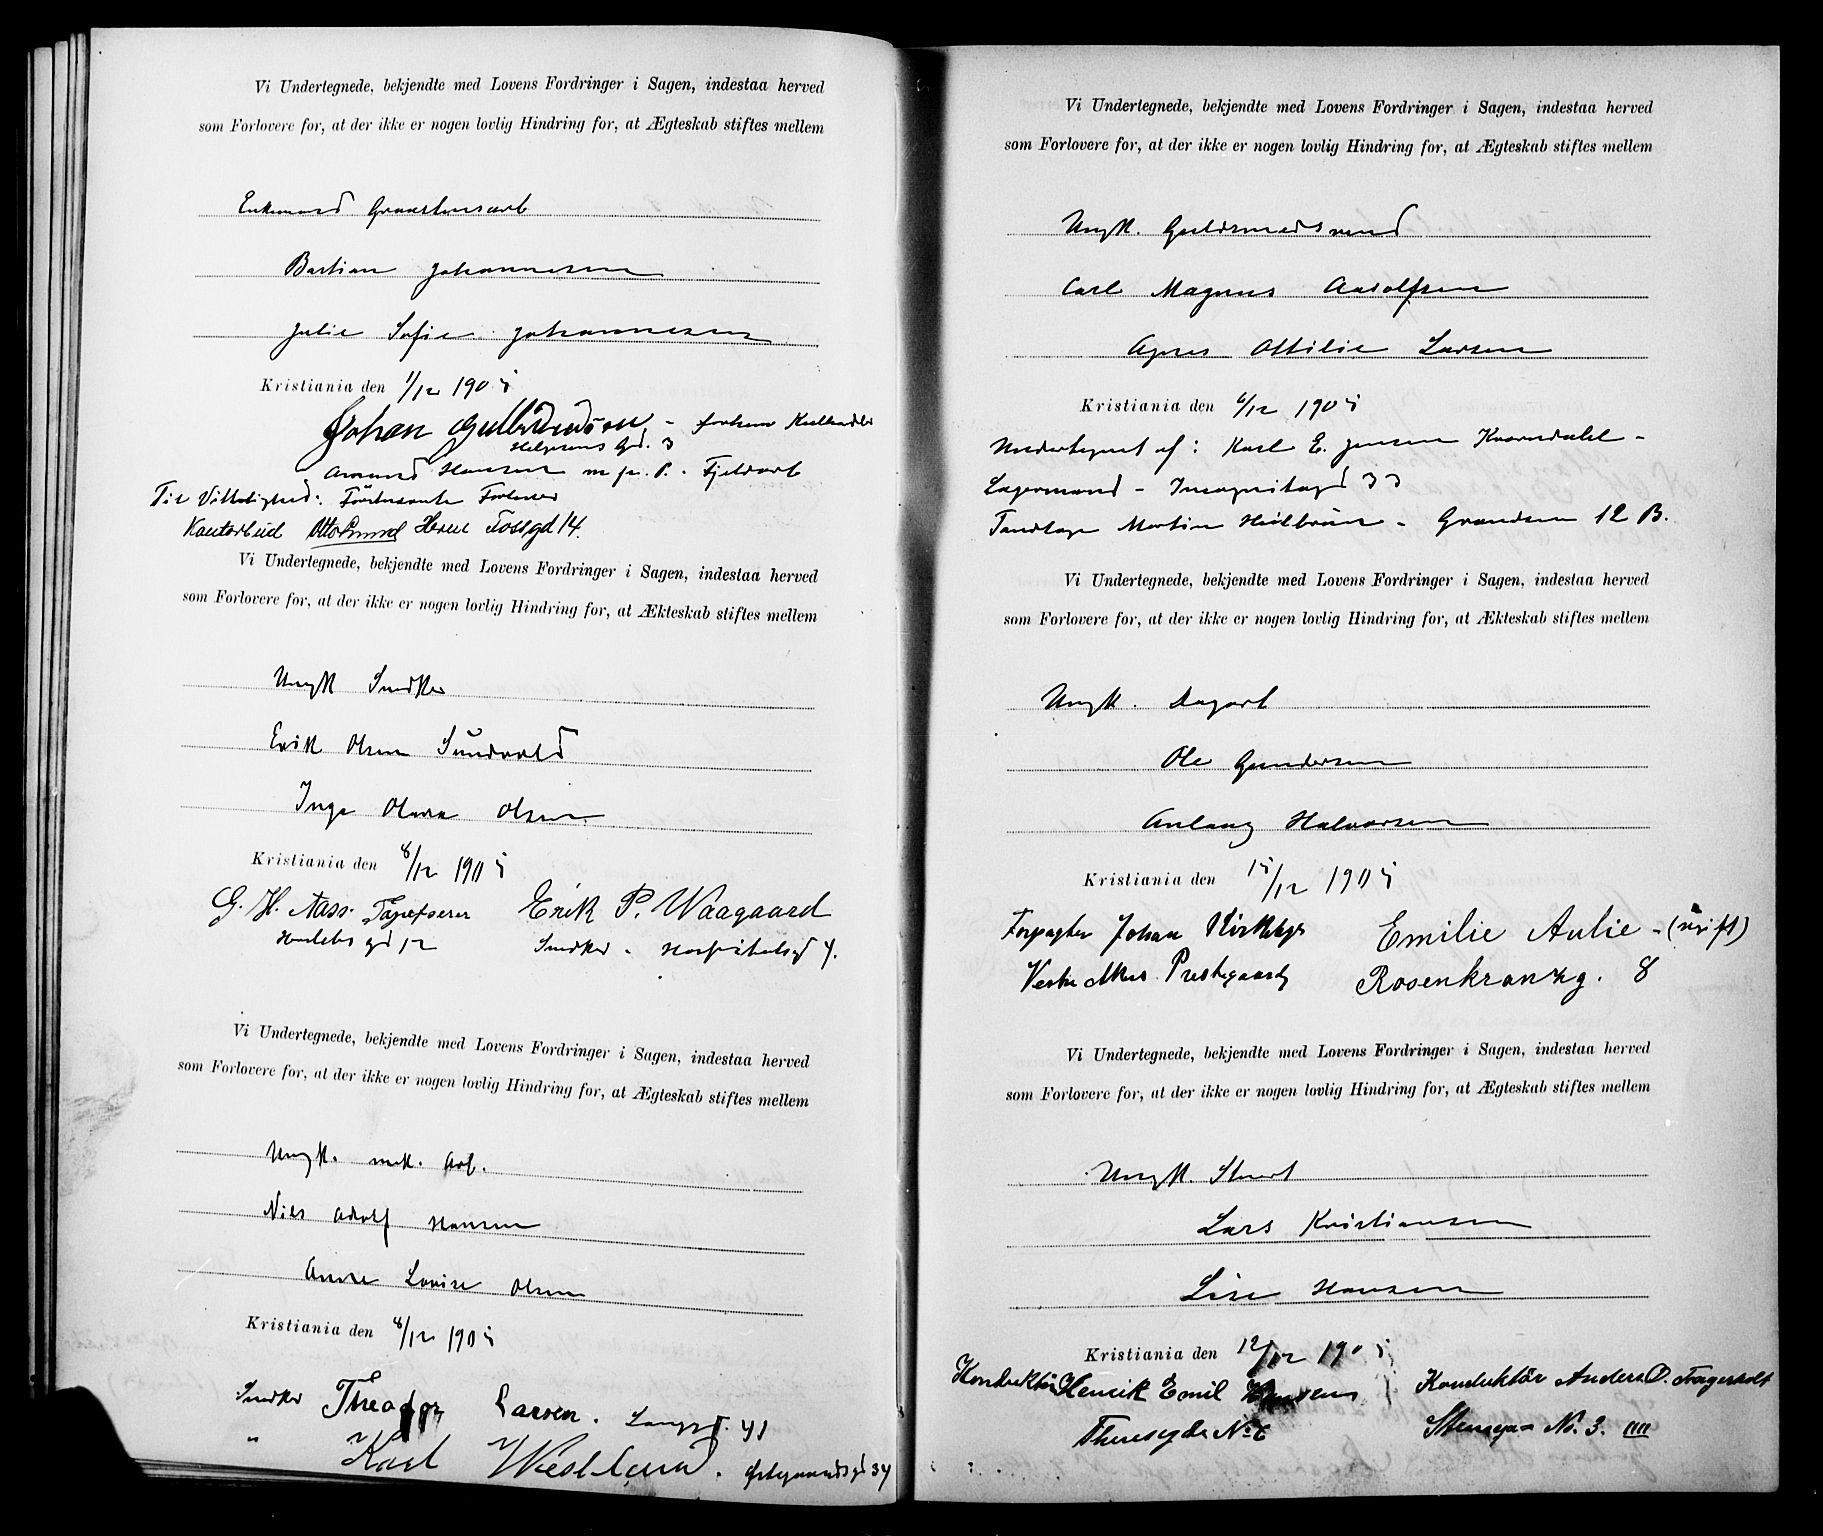 Vi Undertegnede, bekjendte med Lovens Fordringer i Sagen, indestaa herved
som Forlovere for, at der ikke er nogen lovlig Hindring for, at Ægteskab stiftes mellem
Enkemand
Bastian Johannesen
Julie Sofie Johannesen
Kristiania den 1/12 1905
Johan
Helgesens Gd. 3
Amund Hansen m. p. P. Fjeldarb
Til Vitterlighed:
Kontorbud Fossgd 14.
Vi Undertegnede, bekjendte med Lovens Fordringer i Sagen, indestaa herved
som Forlovere for, at der ikke er nogen lovlig Hindring for, at Ækteskab stiftes mellem
Ungk Snedker
Erik Olsen Sundvold
Inga Olava Olsen
Kristiania den 8/12 1905
G. H. Aass. Tapetserer Erik P. Waagaard
Herslebs gd 12 Snedker - Hospitalsgd 4.
Vi Undertegnede, bekjendte med Lovens Fordringer i Sagen, indestaa herved
som Forlovere for, at der ikke er nogen lovlig Hindring for, at Ægteskab stiftes mellem
Ungk. mek. Arb.
Nils Adolf Hansen
Anna Lovise Olsen
Kristiania den 8/12 1905
Snedker Theodor Larsen. Langgd. 41
" Karl Westlund. 34
Vi Undertegnede, bekjendte med Lovens Fordringer i Sagen, indestaa herved
som Forlovere for, at der ikke er nogen lovlig Hindring for, at Ægteskab stiftes mellem
Ungk. Guldsmedsvend
Carl Magnus Adolfsen
Agnes Ottilie Larsen
Kristiania den 6/12 1905
Undertegnet af: Karl E. Jensen -
Lagermand - Incognitogd 33
Martin - Grændsen 12 B.
Vi Undertegnede, bekjendte med Lovens Fordringer i Sagen, indestaa herved
som Forlovere for, at der ikke er nogen lovlig Hindring for, at Ækteskab stiftes mellem
Ungk. Dagarb
Ole Gundersen
Anlaug Halvorsen
Kristiania den 15/12 1905
Forpagter Johan Kirkeby Emilie Aulie - (ugift)
Vestre Aker Prestegaard Rosenkrantzg. 8
Vi Undertegnede, bekjendte med Lovens Fordringer i Sagen, indestaa herved
som Forlovere for, at der ikke er nogen lovlig Hindring for, at Ægteskab stiftes mellem
Ungk. Stenh
Lars Kristiansen
Lise Hansen
Kristiania den 12/12 1905
Konduktör Henrik Emil Hansen Konduktör Anders O. Fagerholt
Theresegde No 6 No. 3. IIII